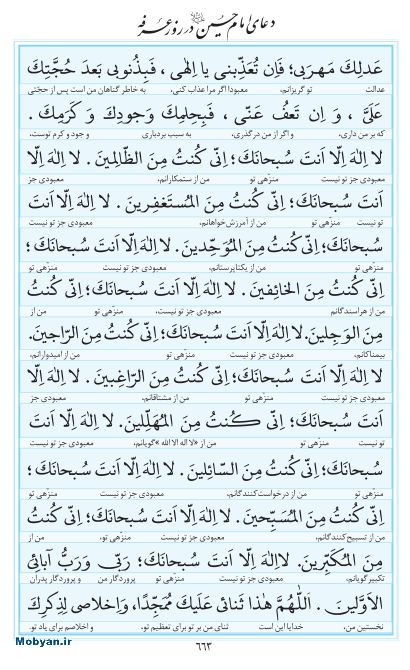 دعای امام حسین در روز عرفه
عَدلِكَ مَهرَبی؛ فَاِن تُعَذِّبنی یا اِلٰهی ، فَبِذُنوبی بَعدَ حُجَّتِكَ
عدالت تو گریزانم، معبودا اگر مرا عذاب کنی، به خاطر گناهان من است پس از حجّتی
عَلَیَّ ، وَ اِن تَعفُ عَنّی ، فَبِحِلمِكَ وَجودِكَ وَ كَرَمِكَ .
که بر من داری، و اگر از من درگذری، به سبب بردباری و جود و کرم توست،
لا اِلٰهَ اِلّا اَنتَ سُبحانَكَ؛ اِنّی كُنتُ مِنَ الظّالِمینَ . لا اِلٰهَ اِلّا
معبودی جز تو نیست منزّهی تو من از ستمکارانم، معبودی جز
اَنتَ سُبحانَكَ؛ اِنّی كُنتُ مِنَ المُستَغفِرینَ . لا اِلٰهَ اِلّا اَنتَ
تو نیست منزّهی تو من از آمرزش‌خواهانم، معبودی جز تو نیست
سُبحانَكَ؛ اِنّی كُنتُ مِنَ المُوَحِّدینَ . لا اِلٰهَ اِلّا اَنتَ سُبحانَكَ ؛
منزّهی تو من از یکتاپرستانم، معبودی جز تو نیست منزّهی تو
اِنّی كُنتُ مِنَ الخائِفینَ . لا اِلٰهَ اِلّا اَنتَ سُبحانَكَ؛ اِنّی كُنتُ
من از هراسندگانم معبودی جز تو نیست، منزّهی تو من از
مِنَ الوَجِلینَ. لا اِلٰهَ اِلّا اَنتَ سُبحانَكَ؛ اِنّی كُنتُ مِنَ الرّاجینَ.
بیمناکانم، معبودی جز تو نیست منزّهی تو من از امیدوارانم،
لا اِلٰهَ اِلّا اَنتَ سُبحانَكَ؛ اِنّی كُنتُ مِنَ الرّاغِبینَ . لا اِلٰهَ اِلّا
معبودی جز تو نیست منزّهی تو من از مشتاقانم، معبودی جز
اَنتَ سُبحانَكَ؛ اِنّی كُنتُ مِنَ المُهَلِّلینَ. لا اِلٰهَ اِلّا اَنتَ
تو نیست منزّهی تو من از «لا اله الا الله» گویانم، معبودی جز تو نیست
سُبحانَكَ؛ اِنّی كُنتُ مِنَ السّائِلینَ . لا اِلٰهَ اِلّا اَنتَ سُبحانَكَ؛
منزّهی تو من از درخواست‌کنندگانم، معبودی جز تو نیست منزّهی تو
اِنّی كُنتُ مِنَ المُسَبِّحینَ . لا اِلٰهَ اِلّا اَنتَ سُبحانَكَ؛ اِنّی كُنتُ
من از تسبیح‌کنندگانم، معبودی جز تو نیست منزّهی تو، من از
مِنَ المُكَبِّرینَ. لا اِلٰهَ اِلّا اَنتَ سُبحانَكَ؛ رَبّی وَ رَبُّ آبائِیَ
تکبیر گویانم، معبودی جز تو نیست منزّهی تو پروردگار من و پروردگار پدران
الاَوَّلینَ . اَللّٰهُمَّ هٰذا ثَنائی عَلَیكَ مُمَجِّدًا، وَ اِخلاصی لِذِكرِكَ
نخستین من، خدایا این است ثنای من بر تو برای تعظیم تو، و اخلاصم برای یاد تو
Mobyan.ir
۶۶۳